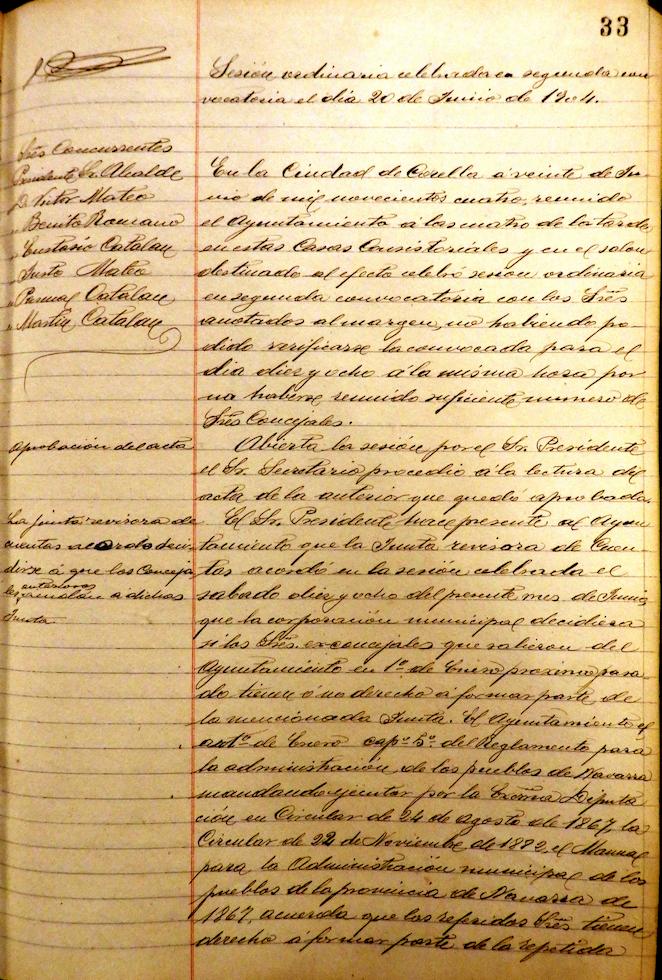 33
Sesión ordinaria celebrada en segunda con
vocatoria el día 20 de Junio de 1904.
Sres Concurrentes
Presidente Sr. Alcalde
D. Victor Mateo
" Benito Romano
" Eustasio Catalan
" Justo Mateo
" Pascual Catalan
" Martin Catalan
En la Ciudad de Corella á veinte de Ju-
nio de mil novecientos cuatro, reunido
el Ayuntamiento á las cuatro de la tarde
en estas Casas Consistoriales y en el salon
destinado al efecto celebró sesion ordinaria
en segunda convocatoria con los Sres
anotados al margen, no habiendo po-
dido verificarse la convocada para el
dia diez y ocho á la misma hora por
no haberse reunido suficiente numero de
Sres Concejales.
Aprobación del acta
Abierta la sesión por el Sr. Presidente
el Sr. Secretario procedió á la lectura del
acta de la anterior que quedó aprobada.
La junta revisora de
cuentas acordo
dirse á que los Conceja
les anteriores á dicha
Junta.
El Sr. Presidente hace presente al Ayun
tamiento que la Junta revisora de Cuen
tas acordó en la sesión celebrada el
sabado diez y ocho del presente mes de Junio
que la corporación municipal decidiera
si los Sres. exconcejales que salieron del
Ayuntamiento en 1º de Enero proximo pasa-
do tienen ó no derecho á formar parte de
la mencionada Junta. El Ayuntamiento
de Enero cap.º 5º del Reglamento para
la administración de los pueblos de Navarra
mandando ejecutar por la Excma Diputa
ción en Circular de 24 de Agosto de 1867, la
Circular de 22 de Noviembre de 1892, el Manual
para la Administración municipal de los
pueblos de la provincia de Navarra de
1867, acuerda que los referidos Sres tienen
derecho á formar parte de la repetida